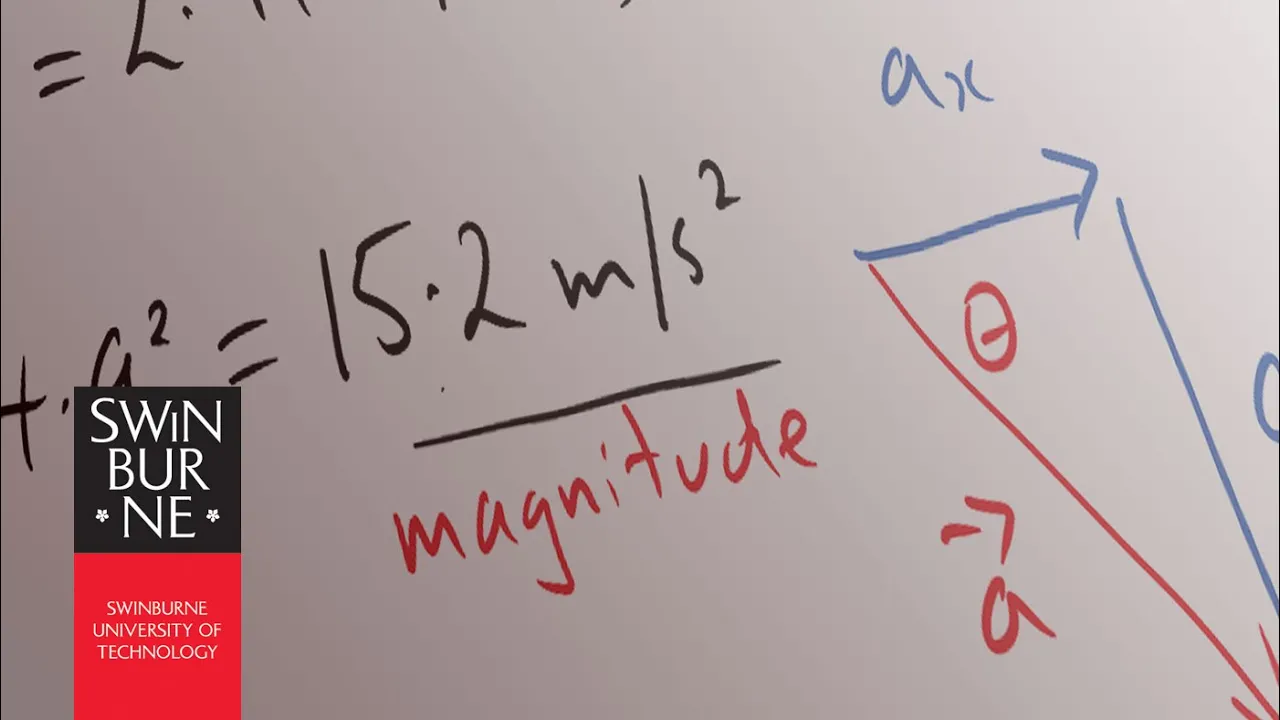 =
aₓ
+ . a² = 15.2 m/s²
magnitude
θ
a⃗
SWINBURNE
SWINBURNE
UNIVERSITY OF
TECHNOLOGY